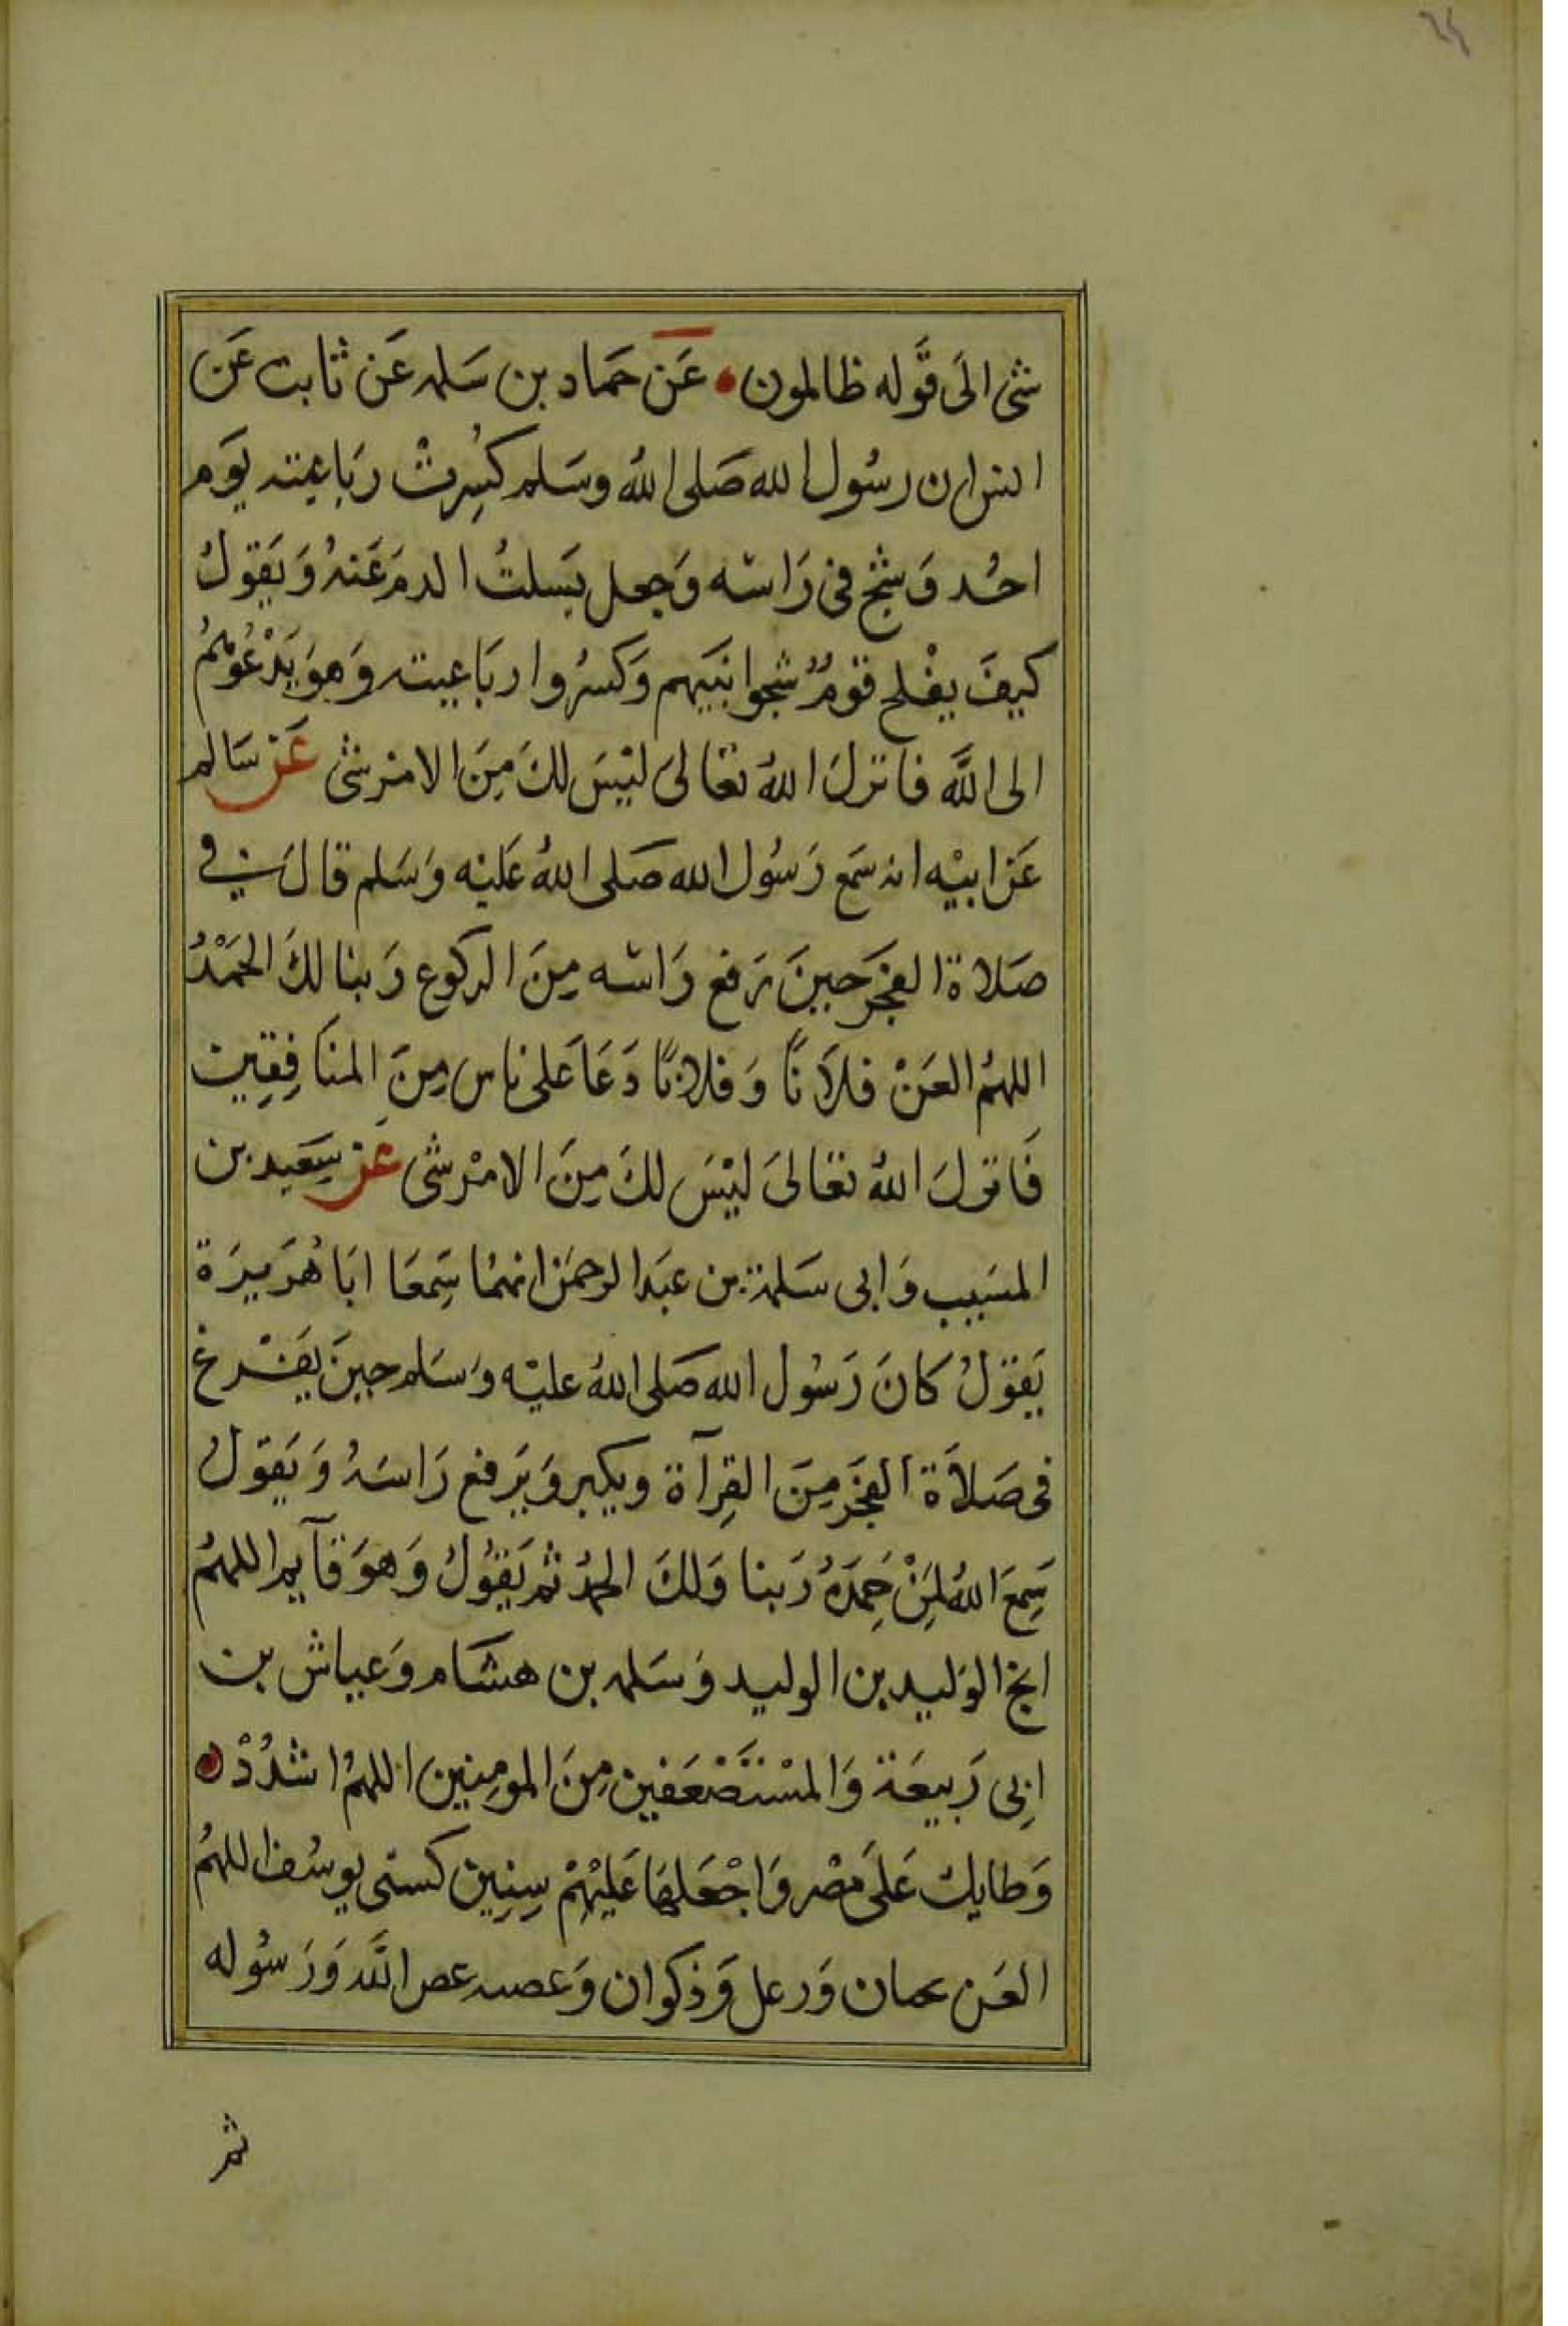 شى الَى قَوله ظالمون • عَن حَماد بن سَلمه عَن ثابت عَن
انس ان رسُول الله صَلى اللهُ وسَلم كسُِرتْ رَباعيته يَوم
احُد وَشج فى رَاسه وَجعل يَسلتُ الدمَ عَنهُ وَيَقولُ
كيفَ يفْلح قومٌ شجوا نبَيهم وَكسرُوا ربَاعيته وَهوَ يَدْعُوهُمُ
الى اللَّه فانزلَ اللهُ تعالىَ ليْسَ لكَ مِنَ الامرشى عَن سَالم
عَن ابيْه انه سَمع رَسُول الله صَلى اللهُ عَليْه وَسَلم قالَ فى
صَلاة الفَجَر حينَ يَرفع رَاسه مِنَ الركوع رَبنا لكَ الحَمْدُ
اللهُم العَنْ فلاَناً وَفلاناً دَعَا عَلى ناس مِنَ المنَافِقِين
فَانزلَ اللهُ تعَالىَ ليْسَ لكَ مِنَ الامْر شى عَن سَِعَيد بن
المسَيب وَابى سَلمة بن عبَد الرحمَن انهمُا سَِمعَا ابَا هُرَيرَة
يَقوَلُ كانَ رَسُول الله صَلى اللهُ عليْه وَسَلم حينَ يَفْرغ
فى صَلاَة الفَجَر مِنَ القِرآة ويكبر وَيَرفع رَاسَهُ وَيَقولُ
سَِمعَ اللهُ لِمَنْ حَِمَدهُ رَبنا وَلكَ الحمْدُ ثم يَقوُلُ وَهوَ قآيم اللهمُ
انج الوَليد بن الوليد وَسَلمه بن هشَام وَعياش بن
ابِى رَبيعَة وَالمسْتَضْعَفين مِنَ المومِنين اللهمُ اشدُدْ
وَطايك عَلَى مضْر وَاجْعَلهَا عَليْهِمْ سِنِين كسنى يوسُف اللهمُ
العَن لحيان وَرعل وَذكوان وَعصيه عصى اللَّه وَرَسُوله
ثم